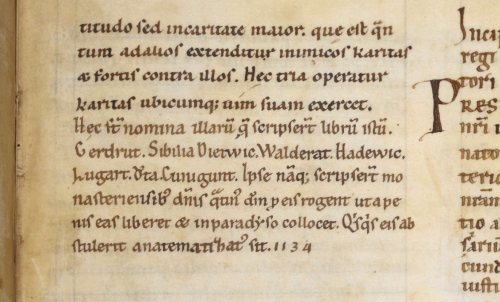 titudo sed incaritate maior. que est q̄n
tum adalios extenditur inimicos karitas
& fortis contra illos. Hec tria operatur
karitas ubicumq; uim suam exercet.
Hec st̄ nomina illarū q̄ scripser̄t librū istū.
Gerdrut. Sibilia Dietwic. Walderat. Hadewic.
Lugart. Cunigunt. Ipse nāq; scripser̄t mo
nasteriensib; dm̄ p eis rogent uta pe
nis eas liberet & in paradyso collocet. eis ab
stulerit anatematizatus sit. 1134
Incip
regi
tori
PRES
nr̄i